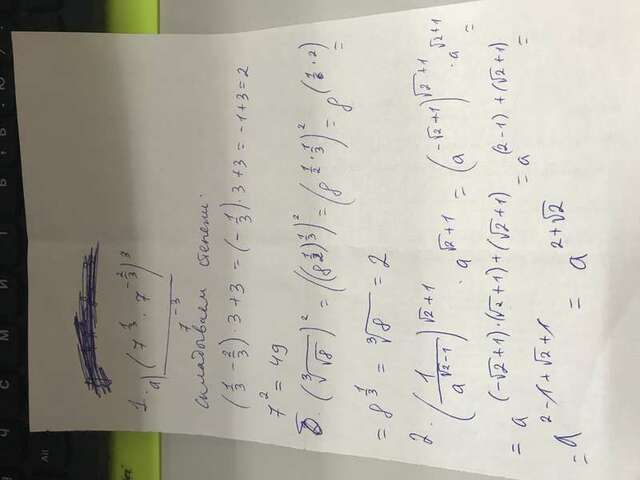 1. а) (7^{1/3} · 7^{-2/3})^3 / 7^{-3}
складываем степени:
(1/3 - 2/3) · 3 + 3 = (- 1/3) · 3 + 3 = -1 + 3 = 2
7^2 = 49
б. (∛√8)^2 = ((8^{1/2})^{1/3})^2 = (8^{1/2 · 1/3})^2 = 8^{(1/6 · 2)} =
= 8^{1/3} = ∛8 = 2
2. (1 / a^{√2-1})^{√2+1} · a^{√2+1} = (a^{-√2+1})^{√2+1} · a^{√2+1} =
= a^{(-√2+1)·(√2+1)+(√2+1)} = a^{(2-1)+(√2+1)} =
= a^{2-1+√2+1} = a^{2+√2}